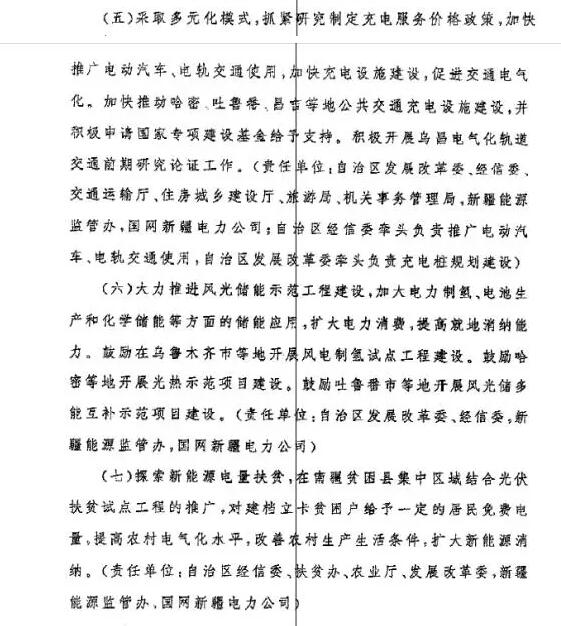 (五)采取多元化模式,抓紧研究制定充电服务价格政策,加快
推广电动汽车、电轨交通使用,加快充电设施建设,促进交通电气
化。加快推动哈密、吐鲁番、昌吉等地公共交通充电设施建设,并
积极申请国家专项建设基金给予支持。积极开展乌昌电气化轨道
交通前期研究论证工作。(责任单位:自治区发展改革委、经信委、
交通运输厅、住房城乡建设厅、旅游局、机关事务管理局,新疆能源
监管办,国网新疆电力公司;自治区经信委牵头负责推广电动汽
车、电轨交通使用,自治区发展改革委牵头负责充电桩规划建设)
(六)大力推进风光储能示范工程建设,加大电力制氢、电池生
产和化学储能等方面的储能应用,扩大电力消费,提高就地消纳能
力。鼓励在乌鲁木齐市等地开展风电制氢试点工程建设。鼓励哈
密等地开展光热示范项目建设。鼓励吐鲁番市等地开展风光储多
能互补示范项目建设。(责任单位:自治区发展改革委、经信委,新
疆能源监管办,国网新疆电力公司)
(七)探索新能源电量扶贫,在南疆贫困县集中区域结合光伏
扶贫试点工程的推广,对建档立卡贫困户给予一定的居民免费电
量,提高农村电气化水平,改善农村生产生活条件,扩大新能源消
纳。(责任单位:自治区经信委、扶贫办、农业厅、发展改革委,新疆
能源监管办,国网新疆电力公司)